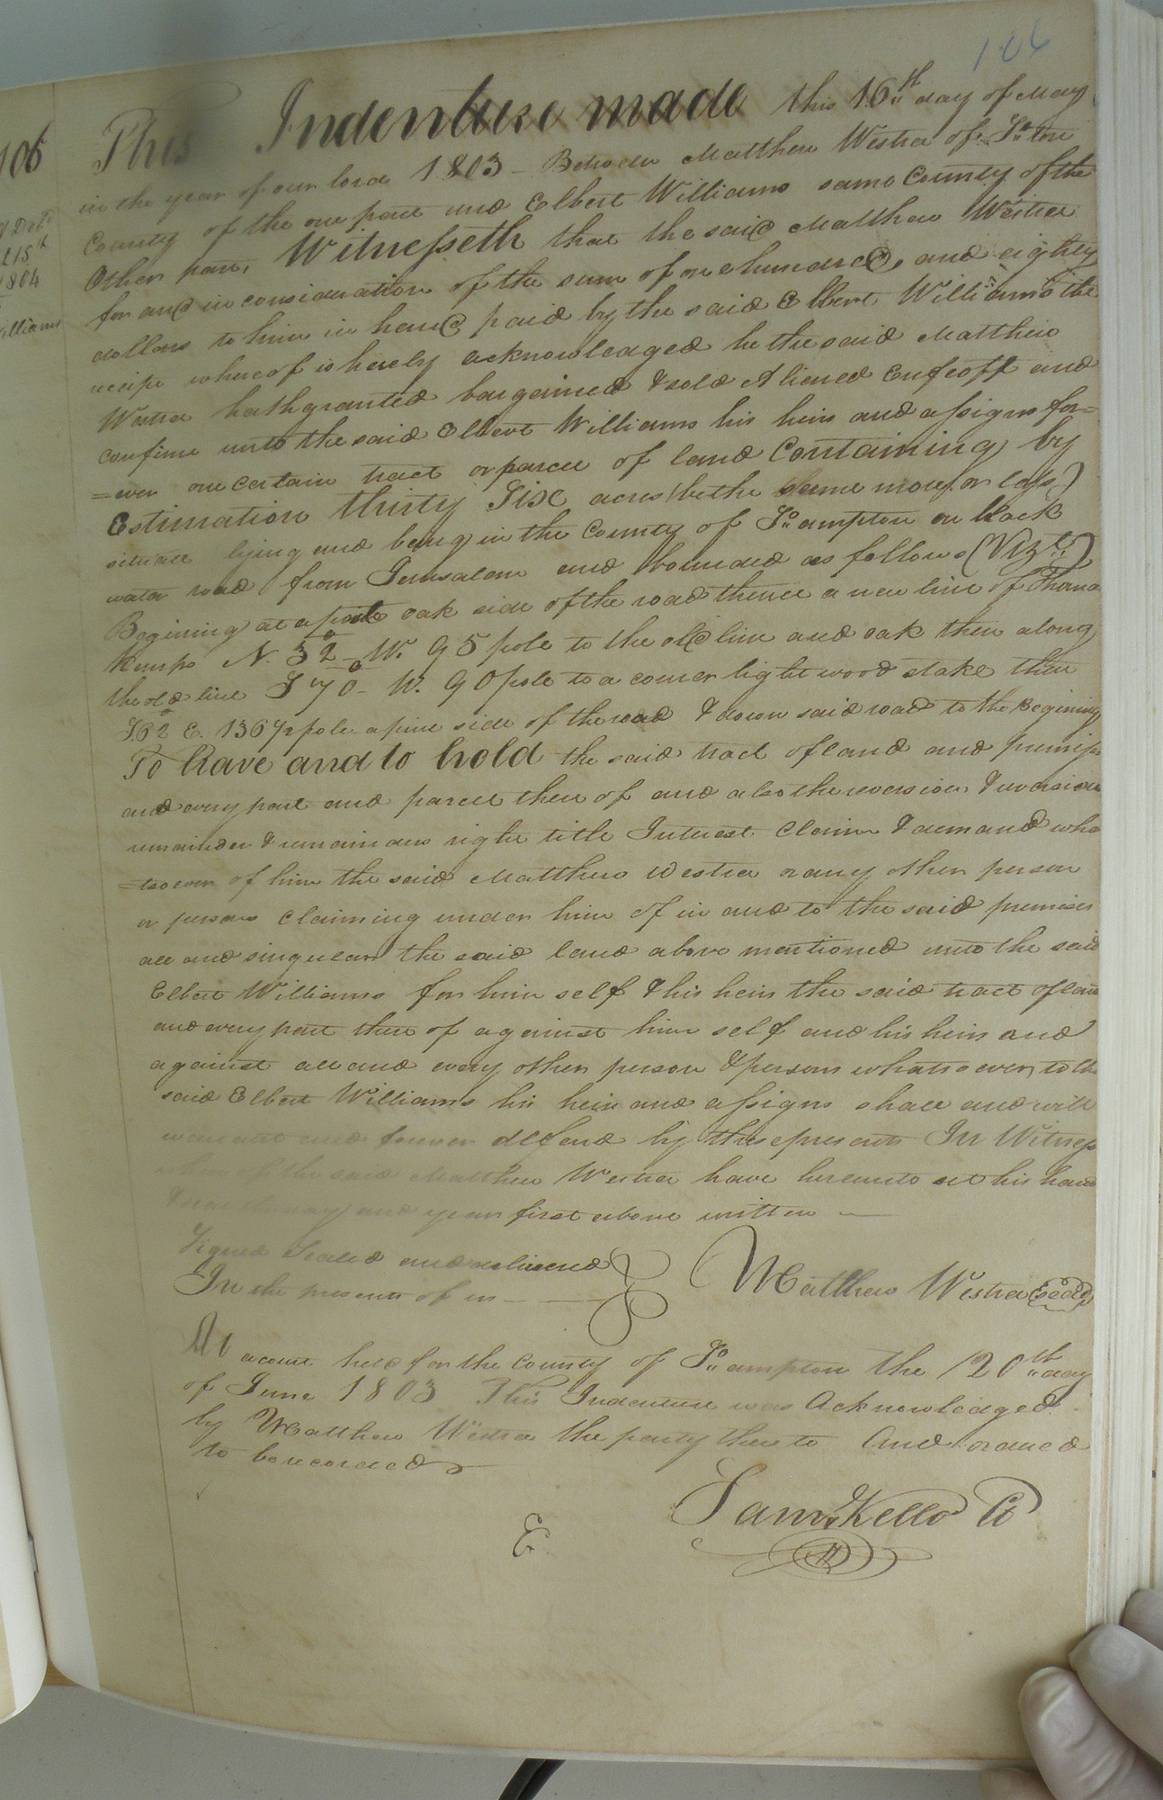 106
106
1804
This Indenture made this 16th day of May
in the year of our lord 1803 - Between Matthew Westra of So. ton
County of the one part and Elbert Williams same County of the
Other part, Witnesseth that the said Matthew Westra
for and in consideration of the sum of one hundred, and eighty
dollars to him in hand paid by the said Elbert Williams the
receipt whereof is hereby acknowledged he the said Matthew
Westra hath granted bargained & sold Aliened Enfeoff and
confirm unto the said Elbert Williams his heirs and assigns for=
=ever one certain tract or parcel of land Containing by
Estimation thirty Six acres (be the same more or less)
situate lying and being in the County of So. ampton on black
water road from Jerusalem and bounded as follows (Vizt)
Begining at a post oak side of the road thence a new line of
Kemps N. 32° W. 95 pole to the old line and oak then along
the old line S 70° W. 90 pole to a corner lightwood stake then
S62 E. 136 1/2 pole a pine side of the road & down said road to the Begining
To have and to hold the said tract of land and
and every part and parcel there of and also the reversion & reversions
remainder & remainders right title Interest Claim & demand what
=tsoever of him the said Matthew Westra or any other person
or persons Claiming under him of in and to the said premises
all and singular the said land above mentioned unto the said
Elbert Williams for him self & his heirs the said tract of land
and every part there of against him self and his heirs and
against all and every other person & persons whatsoever, to the
said Elbert Williams his heirs and assigns shall and will
warrant and forever deffend by these presents In Witness
whereof the said Matthew Westra have hereunto set his hand
day and year first above written -
Signed Sealed and delivered
In the presents of us
Matthew Westra (Seal)
At a court held for the County of So. ampton the 20th day
of June 1803 This Indenture was Acknowledged
by Matthew Westra the party there to And ordered
to be recorded
Saml. Kello Ct
E